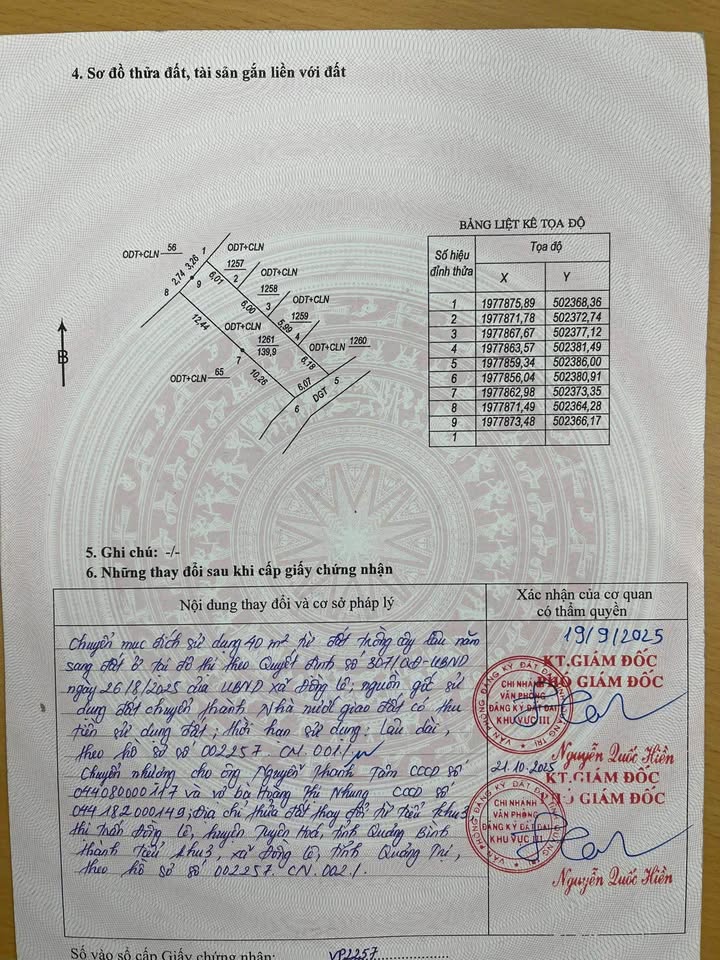 4. Sơ đồ thửa đất, tài sản gắn liền với đất
BẢNG LIỆT KÊ TỌA ĐỘ
Số hiệu đỉnh thửa
Tọa độ
X Y
1 1977875,89 502368,36
2 1977871,78 502372,74
3 1977867,67 502377,12
4 1977863,57 502381,49
5 1977859,34 502386,00
6 1977856,04 502380,91
7 1977862,98 502373,35
8 1977871,49 502364,28
9 1977873,48 502366,17
1
ODT+CLN 56
1
ODT+CLN
1257
2
ODT+CLN
1258
3
ODT+CLN
1259
4
ODT+CLN 1260
2,74 3,26
8
9
6,01
6,00
5,99
6,18
12,44
ODT+CLN
1261
139,9
7
10,26
6,07
5
6
ODT+CLN 65
DGT
B
5. Ghi chú: -/-
6. Những thay đổi sau khi cấp giấy chứng nhận
Nội dung thay đổi và cơ sở pháp lý
Xác nhận của cơ quan
có thẩm quyền
Chuyển mục đích sử dụng 40 m² từ đất trồng cây lâu năm
sang đất ở tại đô thị theo Quyết định số 307/QĐ-UBND
ngày 26/8/2025 của UBND xã Đồng Lê; nguồn gốc sử
dụng đất chuyển thành Nhà nước giao đất có thu
tiền sử dụng đất; thời hạn sử dụng: Lâu dài,
theo hồ sơ số 002257.CN.001./.
Chuyển nhượng cho ông Nguyễn Thanh Tâm CCCD số
044080000117 và vợ bà Hoàng Thị Nhung CCCD số
044182000149; Địa chỉ thửa đất thay đổi từ Tiểu khu 3
thị trấn Đồng Lê, huyện Tuyên Hoá, tỉnh Quảng Bình
thành Tiểu khu 3, xã Đồng Lê, tỉnh Quảng Trị,
theo hồ sơ số 002257.CN.002./.
19/9/2025
KT.GIÁM ĐỐC
PHÓ GIÁM ĐỐC
VĂN PHÒNG ĐĂNG KÝ ĐẤT ĐAI TỈNH QUẢNG TRỊ
CHI NHÁNH
VĂN PHÒNG
ĐĂNG KÝ ĐẤT ĐAI
KHU VỰC III
Nguyễn Quốc Hiền
21.10.2025
KT.GIÁM ĐỐC
PHÓ GIÁM ĐỐC
VĂN PHÒNG ĐĂNG KÝ ĐẤT ĐAI TỈNH QUẢNG TRỊ
CHI NHÁNH
VĂN PHÒNG
ĐĂNG KÝ ĐẤT ĐAI
KHU VỰC III
Nguyễn Quốc Hiền
Số vào sổ cấp Giấy chứng nhận: VP2257